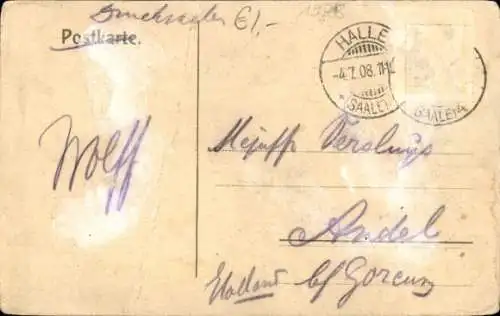 Drucksache €1,-
Postkarte.
HALLE
-4.7.08.11-12
* (SAALE)
(SAALE)
Wolff
Mejuffr Verslups
Andel
Holland b/ Gorcum